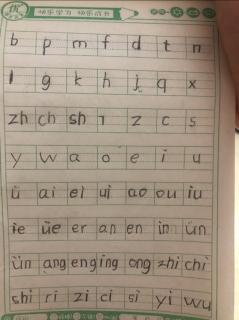 优 快乐学习 快乐成长
b p m f d t n
l g k h j q x
zh ch sh r z c s
y w a o e i u
ü ai ei ui ao ou iu
ie üe er an en in un
ün ang eng ing ong zhi chi
shi ri zi ci si yi wu